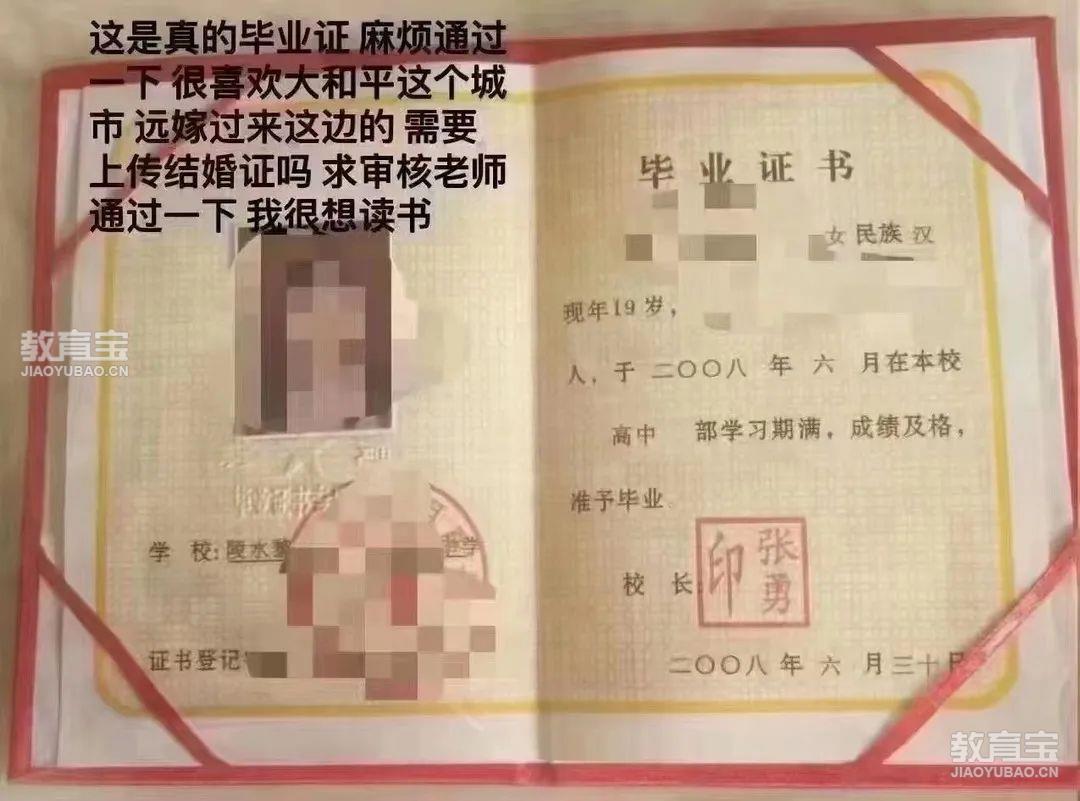 这是真的毕业证 麻烦通过
一下 很喜欢大和平这个城
市 远嫁过来这边的 需要
上传结婚证吗 求审核老师
通过一下 我很想读书
毕业证书
女 民族 汉
现年19岁，
人，于 二〇〇八 年 六 月在本校
高中 部学习期满，成绩及格，
准予毕业
学 校：陵水黎
校 长：
张勇印
证书登记
二〇〇八 年 六 月三十日
教育宝
JIAOYUBAO.CN
教育宝
JIAOYUBAO.CN